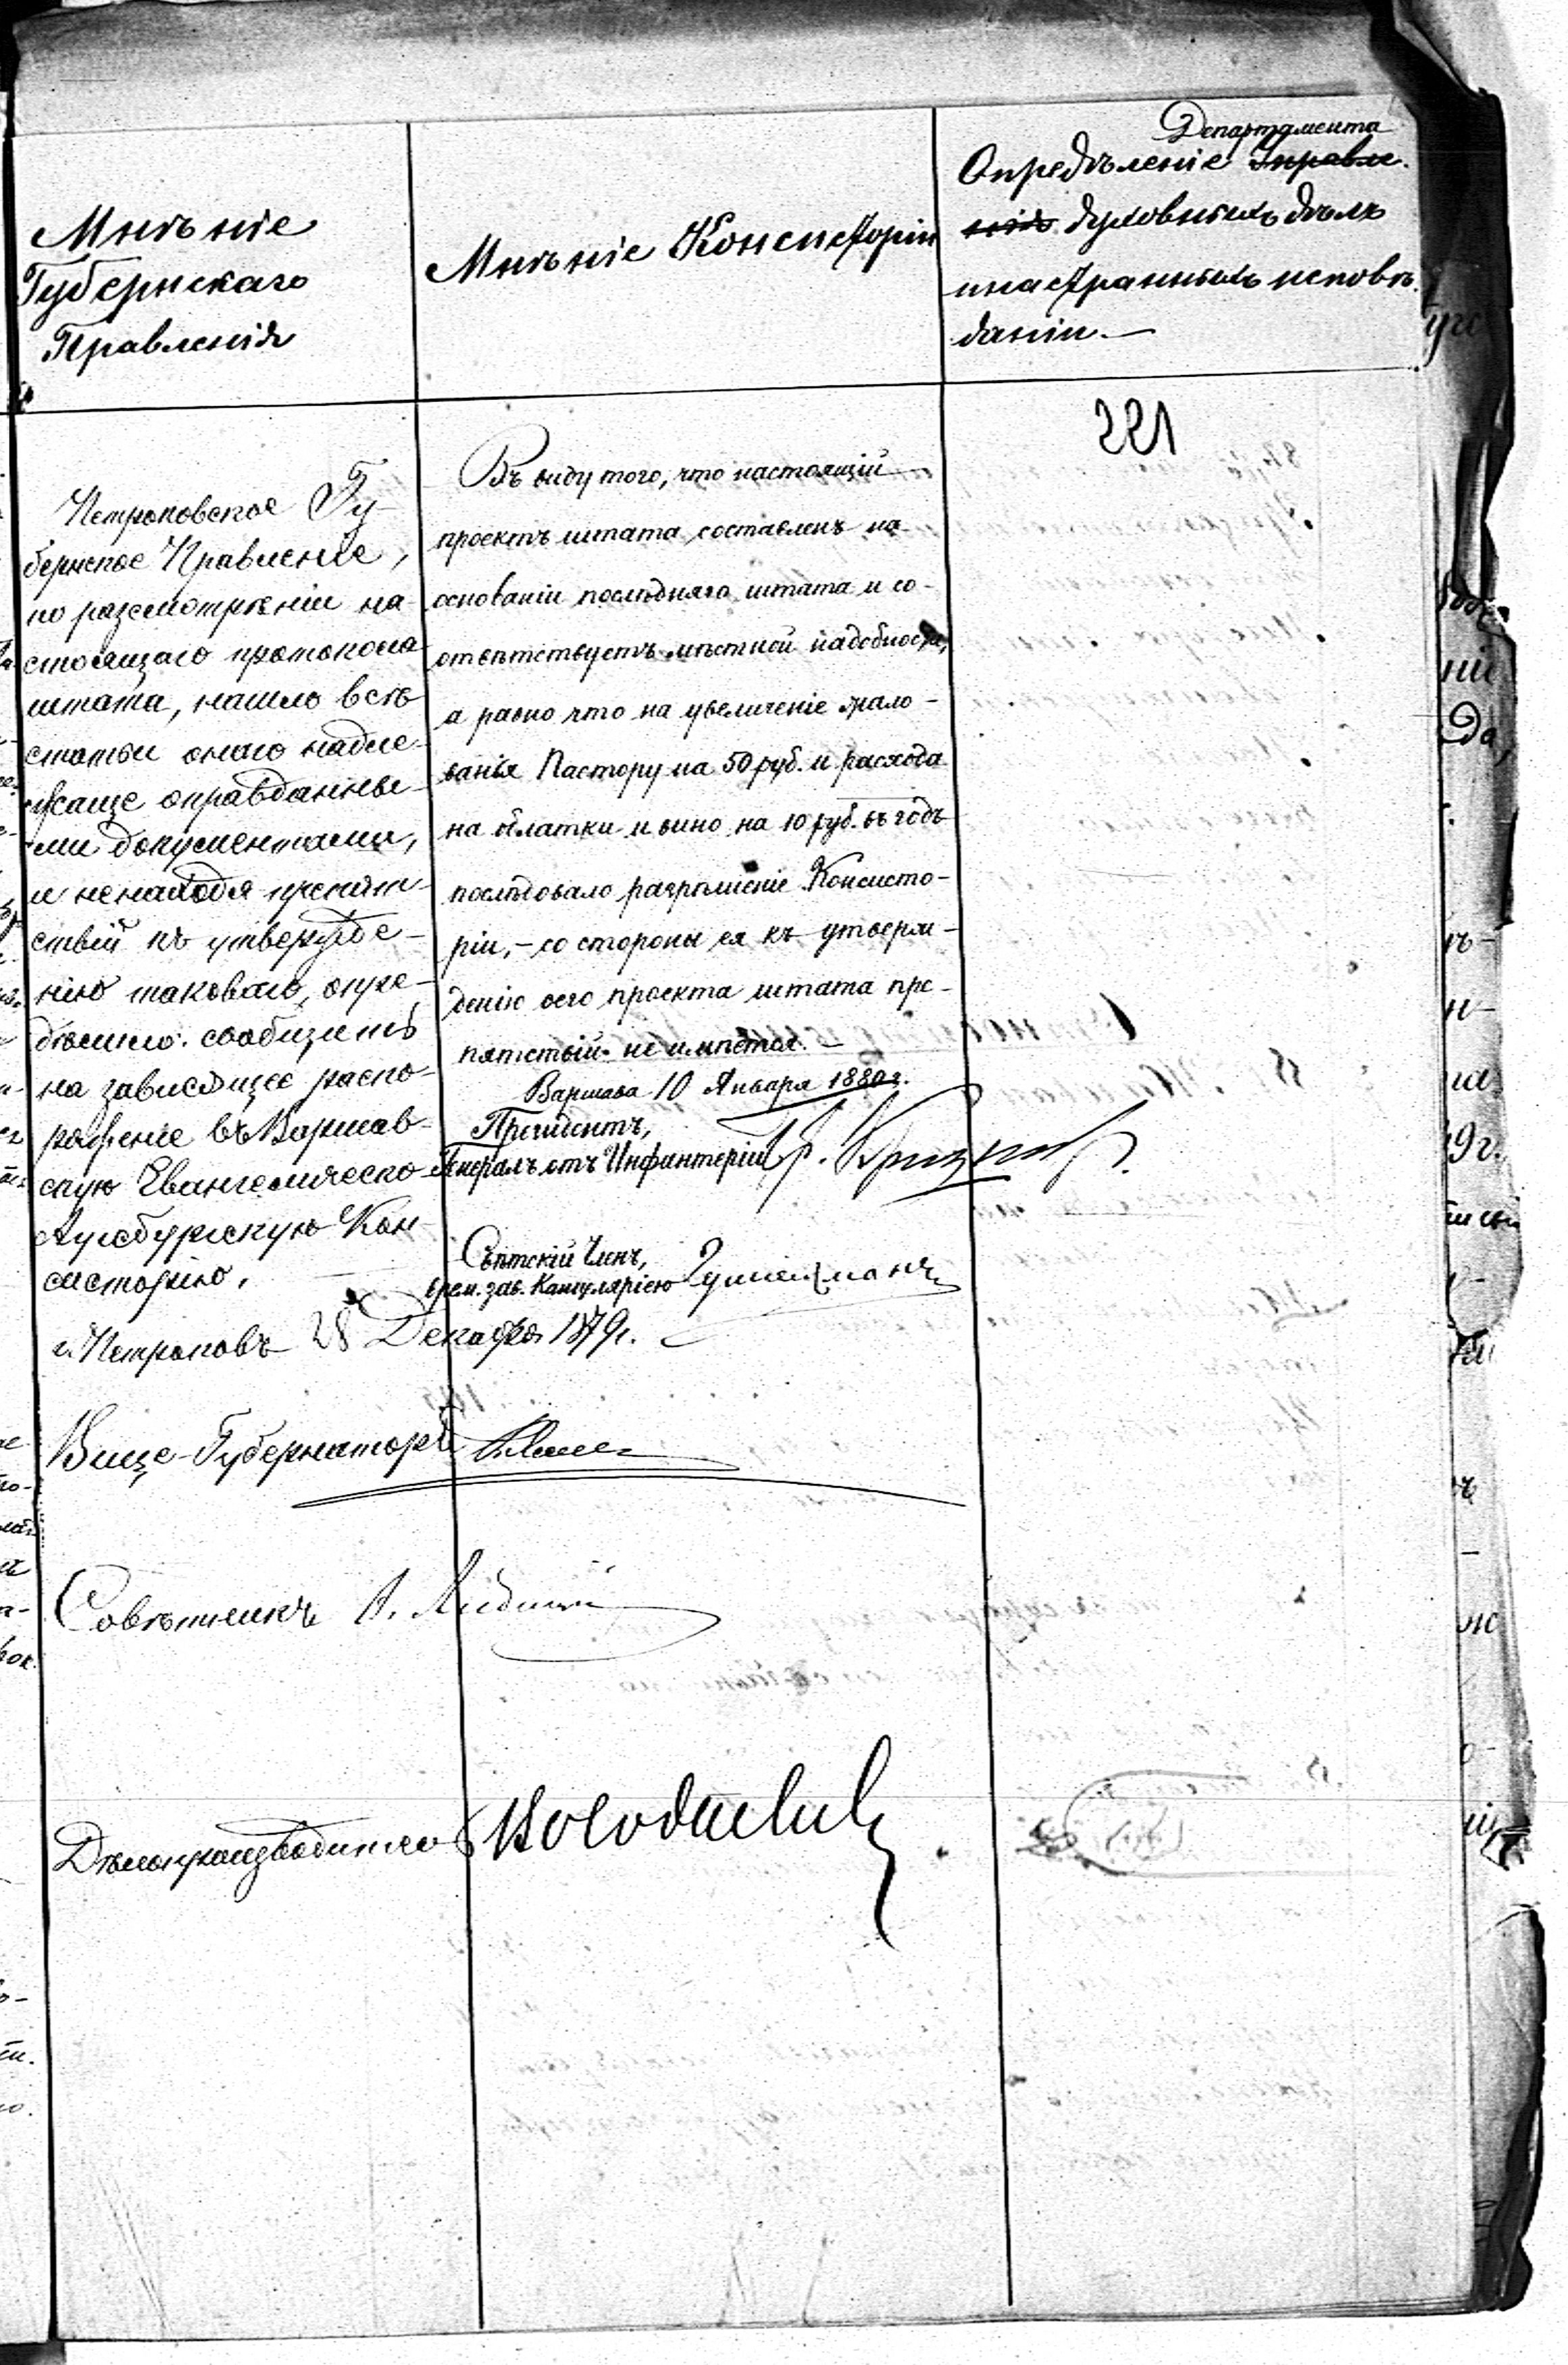 Мнѣніе
Губернскаго
Правленія
Мнѣніе Консисторіи
Департамента
Опредѣленіе Управле-
нія духовныхъ дѣлъ
иностранныхъ исповѣ-
даніи.—
221
Петроковское Гу-
бернское Правленіе,
по разсмотрѣніи на-
стоящаго протокола
штата, нашло всѣ
статьи онаго надле-
жаще оправданны-
ми документами,
и не находя препят-
ствій къ утвержде-
нію таковаго, опре-
дѣлило: сообщить
на зависящее распо-
ряженіе въ Варшав-
скую Евангелическо-
Аугсбургскую Кон-
систорію.
г. Петроковъ 28 Декабря 1879 г.
Вице-Губернаторъ
Совѣтникъ
Дѣлопроизводитель
Въ виду того, что настоящій
проектъ штата составленъ на
основаніи послѣдняго штата и со-
отвѣтствуетъ мѣстной надобности,
а равно что на увеличеніе жало-
ванья Пастору на 50 руб. и расхода
на облатки и вино на 10 руб. въ годъ
послѣдовало разрѣшеніе Консисто-
ріи, – со стороны ея къ утверж-
денію сего проекта штата пре-
пятствій не имѣется. –
Варшава 10 Января 1880 г.
Президентъ,
Генералъ отъ Инфантеріи
Свѣтскій Членъ,
врем. зав. Канцеляріею